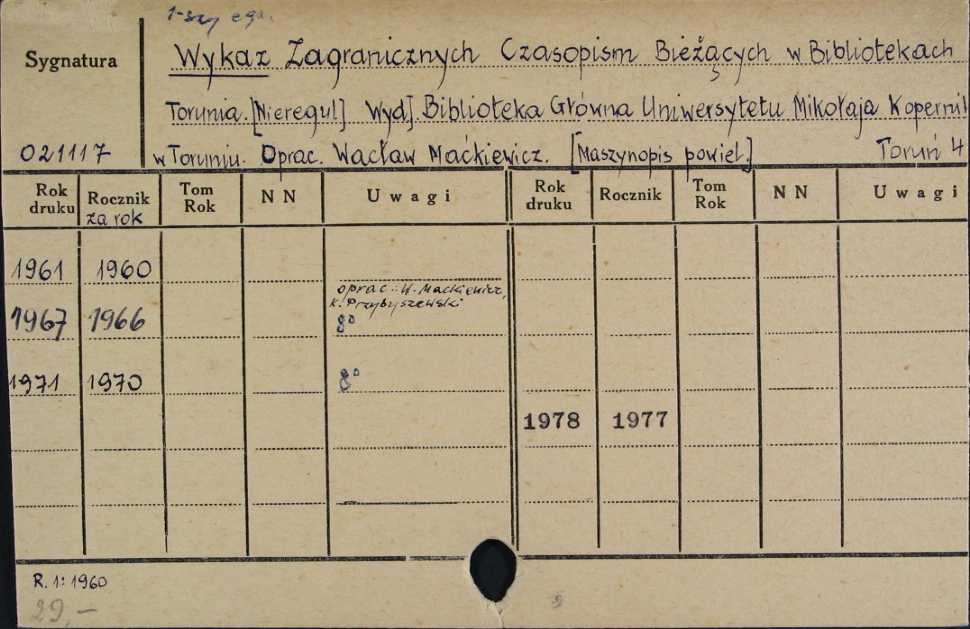 1-szy egz.
Sygnatura
Wykaz Zagranicznych Czasopism Bieżących w Bibliotekach
Torunia. [Nieregul] Wyd]. Biblioteka Główna Uniwersytetu Mikołaja Kopernik
021117 w Toruniu. Oprac. Wacław Maćkiewicz. [Maszynopis powiel.] Toruń 4
Rok druku Rocznik Tom Rok N N Uwagi Rok druku Rocznik Tom Rok N N Uwagi
za rok
1961 1960
oprac.: W. Mackiewicz,
K. Przybyszewski
1967 1966 8°
1971 1970 8°
1978 1977
R. 1: 1960
29,-